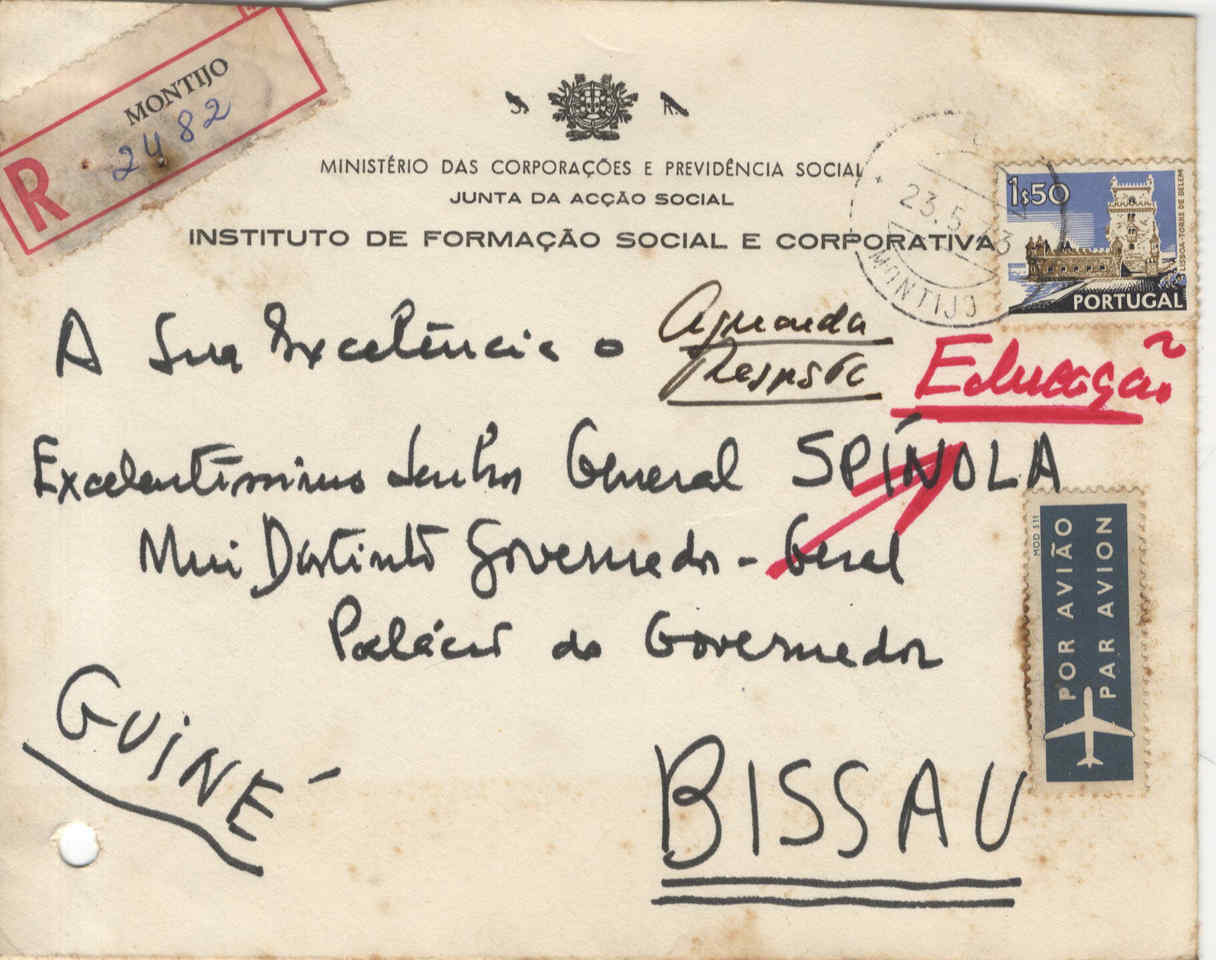 MONTIJO
R 2482
MINISTÉRIO DAS CORPORAÇÕES E PREVIDÊNCIA SOCIAL
JUNTA DA ACÇÃO SOCIAL
INSTITUTO DE FORMAÇÃO SOCIAL E CORPORATIVA
23.5.
MONTIJO
1$50
LISBOA-TORRE DE BELEM
PORTUGAL
A Sua Excelência o
Aguarda
Resposta
Educação
Excelentíssimo Senhor General SPÍNOLA
Mui Distinto Governador-Geral
Palácio do Governador
GUINÉ
BISSAU
MOD 511
POR AVIÃO
PAR AVION